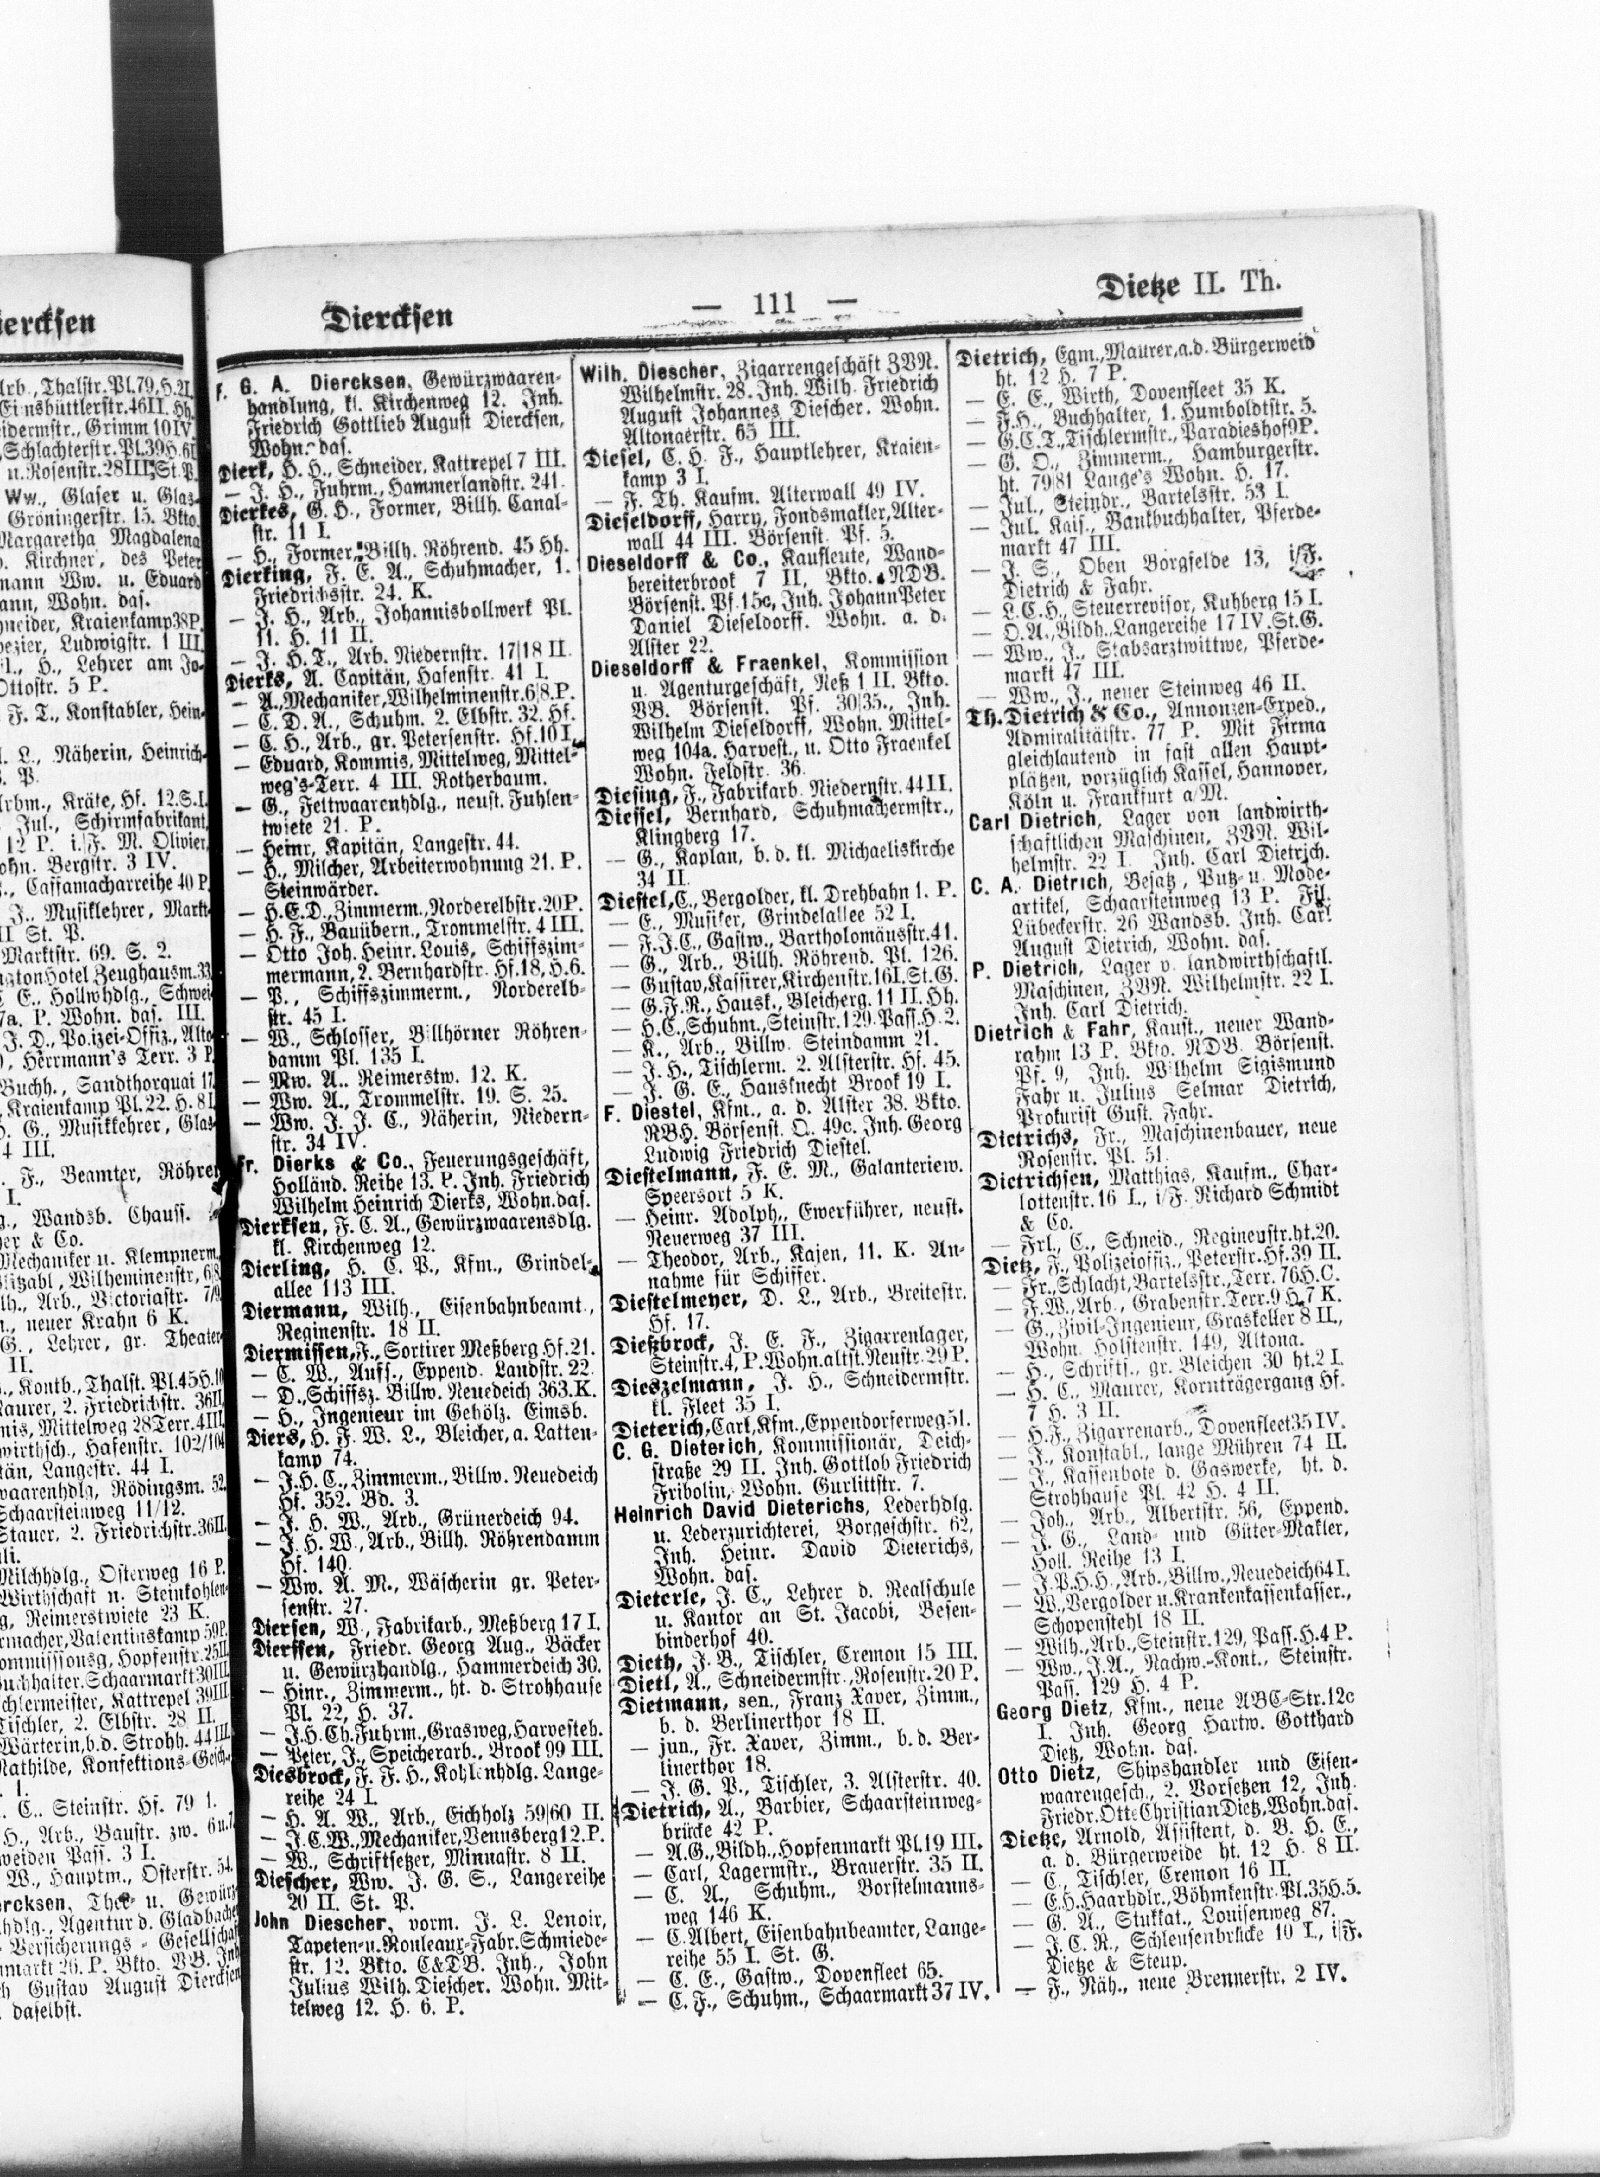 iercksen
Arb., Thalstr. Pl. 79, H. 2I.
Einsbüttlerstr. 46II. Hh.
eidermstr., Grimm 10 IV
Schlachterstr. Pl. 39 H. 6I
u. Rosenstr. 28 III. St. P.
Ww., Glaser u. Glas-
Gröningerstr. 15. Bkto.
Margaretha Magdalena
Kirchner, des Peter
mann Ww. u. Eduard
ann, Wohn. das.
hneider, Kraienkamp 38 P.
pezier, Ludwigstr. 1 III
H., Lehrer am Jo-
Ottostr. 5 P.
F. T., Konstabler, Hein-
L., Näherin, Heinrich-
P.
Arbm., Kräte, Hf. 12. S. I.
Jul., Schirmfabrikant,
12 P. i./F. M. Olivier,
ohn. Bergstr. 3 IV.
Caffamacharreihe 40 P.
J., Musiklehrer, Markt-
II St. P.
Marktstr. 69. S. 2.
ngton Hotel Zeughausm. 33
E., Hollwhdlg., Schwei-
7a. P. Wohn. das. III.
J. D., Polizei-Offiz., Alto-
Herrmann's Terr. 3 P.
Buchh., Sandthorquai 17
Kraienkamp Pl. 22. H. 8 I.
G., Musiklehrer, Glas-
4 III.
F., Beamter, Röhren
I.
Wandsb. Chauss.
er & Co.
Mechaniker u. Klempnerm.
Wilheminenstr. 6/8
lh., Arb., Victoriastr. 7/9
neuer Krahn 6 K.
G., Lehrer, gr. Theater-
II.
Kontb., Thalst. Pl. 45 H. 10
Maurer, 2. Friedrichstr. 36 II.
mis, Mittelweg 28 Terr. 4 III.
wirthsch., Hafenstr. 102/104
tän, Langestr. 44 I.
waarenhdlg, Rödingsm. 52.
Schaarsteinweg 11/12.
Stauer, 2. Friedrichstr. 36 II.
Milchhdlg., Osterweg 16 P.
Wirthschaft n. Steinkohlen-
g, Reimerstwiete 23 K.
rmacher, Valentinskamp 59 P.
ommissionsg, Hopfenstr. 25 II.
Buchhalter. Schaarmarkt 30 III.
schlermeister, Kattrepel 39 III.
Tischler, 2. Elbstr. 28 II.
Wärterin, b. d. Strohh. 44 III.
Mathilde, Konfektions-Gesch.,
1.
C., Steinstr. Hf. 79 1.
H., Arb., Baustr. zw. 6 u. 7
weiden Pass. 3 I.
W., Hauptm., Osterstr. 54.
ercksen, Thee- u. Gewürz-
hdlg., Agentur d. Gladbacher
Versicherungs-Gesellschaft
markt 26. P. Bkto. VB. Inh.
h Gustav August Diercksen
daselbst.
Diercksen
— 111 —
Dietze II. Th.
F. G. A. Diercksen, Gewürzwaaren-
handlung, kl. Kirchenweg 12. Inh.
Friedrich Gottlieb August Diercksen,
Wohn. das.
Dierk, H. H., Schneider, Kattrepel 7 III.
— J. H., Fuhrm., Hammerlandstr. 241.
Dierkes, G. H., Former, Billh. Canal-
str. 11 I.
— H., Former, Billh. Röhrend. 45 Hh.
Dierking, F. E. A., Schuhmacher, 1.
Friedrichsstr. 24. K.
— J. H., Arb., Johannisbollwerk Pl.
11. H. 11 II.
— J. H. T., Arb. Niedernstr. 17/18 II.
Dierks, A. Capitän, Hafenstr. 41 I.
— A., Mechaniker, Wilhelminenstr. 6/8. P.
— C. D. A., Schuhm. 2. Elbstr. 32. Hf.
— C. H., Arb., gr. Petersenstr. Hf. 10 I.
— Eduard, Kommis, Mittelweg, Mittel-
weg's-Terr. 4 III. Rotherbaum.
— G., Feltwaarenhdlg., neust. Fuhlen-
twiete 21. P.
— Heinr., Kapitän, Langestr. 44.
— H., Milcher, Arbeiterwohnung 21. P.
Steinwärder.
— H. E. D., Zimmerm., Norderelbstr. 20 P.
— H. F., Bauübern., Trommelstr. 4 III.
— Otto Joh. Heinr. Louis, Schiffszim-
mermann, 2. Bernhardstr. Hf. 18, H. 6.
— P., Schiffszimmerm., Norderelb-
str. 45 I.
— W., Schlosser, Billhörner Röhren-
damm Pl. 135 I.
— Mw. A., Reimerstw. 12. K.
— Ww. A., Trommelstr. 19. S. 25.
— Ww. J. J. C., Näherin, Niedern-
str. 34 IV.
Fr. Dierks & Co., Feuerungsgeschäft,
Holländ. Reihe 13. P. Inh. Friedrich
Wilhelm Heinrich Dierks, Wohn. das.
Dierksen, F. C. A., Gewürzwaarensdlg.
kl. Kirchenweg 12.
Dierling, H. C. P., Kfm., Grindel-
allee 113 III.
Diermann, Wilh., Eisenbahnbeamt.,
Reginenstr. 18 II.
Diermissen, F., Sortirer Meßberg Hf. 21.
— C. W., Auff., Eppend. Landstr. 22.
— D., Schiffsz. Billw. Neuedeich 363. K.
— H., Ingenieur im Gehölz. Eimsb.
Diers, H. F. W. L., Bleicher, a. Latten-
kamp 74.
— J. H. C., Zimmerm., Billw. Neuedeich
Hf. 352. Bd. 3.
— J. H. W., Arb., Grünerdeich 94.
— J. H. W., Arb., Billh. Röhrendamm
Hf. 140.
— Ww. A. M., Wäscherin gr. Peter-
senstr. 27.
Diersen, W., Fabrikarb., Meßberg 17 I.
Dierssen, Friedr. Georg Aug., Bäcker
u. Gewürzhandlg., Hammerdeich 30.
— Hinr., Zimmerm., ht. d. Strohhause
Pl. 22, H. 37.
— J. H. Ch. Fuhrm., Grasweg, Harvesteh.
— Peter, J., Speicherarb., Brook 99 III.
Diesbrock, F. F. H., Kohlenhdlg. Lange-
reihe 24 I.
— H. A. W., Arb., Eichholz 59/60 II.
— J. C. W., Mechaniker, Venusberg 12. P.
— W., Schriftsetzer, Minnastr. 8 II.
Diescher, Ww. J. G. S., Langereihe
20 II. St. P.
John Diescher, vorm. J. L. Lenoir,
Tapeten- u. Rouleaux-Fabr. Schmiede-
str. 12. Bkto. C&DB. Inh., John
Julius Wilh. Diescher. Wohn. Mit-
telweg 12. H. 6. P.
Wilh. Diescher, Zigarrengeschäft ZVN.
Wilhelmstr. 28. Inh. Wilh. Friedrich
August Johannes Diescher. Wohn.
Altonaerstr. 65 III.
Diesel, C. H. F., Hauptlehrer, Kraien-
kamp 3 I.
— F. Th. Kaufm. Alterwall 49 IV.
Dieseldorff, Harry, Fondsmakler, Alter-
wall 44 III. Börsenst. Pf. 5.
Dieseldorff & Co., Kaufleute, Wand-
bereiterbrook 7 II, Bkto. NDB.
Börsenst. Pf. 15c, Inh. Johann Peter
Daniel Dieseldorff. Wohn. a. d.
Alster 22.
Dieseldorff & Fraenkel, Kommission
u. Agenturgeschäft, Neß 1 II. Bkto.
VB. Börsenst. Pf. 30/35., Inh.
Wilhelm Dieseldorff, Wohn. Mittel-
weg 104a. Harvest., u. Otto Fraenkel
Wohn. Feldstr. 36.
Diesing, F., Fabrikarb. Niedernstr. 44 II.
Diessel, Bernhard, Schuhmachermstr.,
Klingberg 17.
— G., Kaplan, b. d. kl. Michaeliskirche
34 II.
Diestel, C., Bergolder, kl. Drehbahn 1. P.
— E., Musiker, Grindelallee 52 I.
— F. J. C., Gastw., Bartholomäusstr. 41.
— G., Arb., Billh. Röhrend. Pl. 126.
— Gustav, Kassirer, Kirchenstr. 16 I. St. G.
— G. F. R., Hausk., Bleicherg. 11 II. Hh.
— H. C., Schuhm., Steinstr. 129. Pass. H. 2.
— K., Arb., Billw. Steindamm 21.
— J. H., Tischlerm. 2. Alsterstr. Hf. 45.
— J. G. E., Hausknecht Brook 19 I.
F. Diestel, Kfm., a. d. Alster 38. Bkto.
RBH. Börsenst. Q. 49c. Inh. Georg
Ludwig Friedrich Diestel.
Diestelmann, F. E. M., Galanteriew.
Speersort 5 K.
— Heinr. Adolph., Ewerführer, neust.
Neuerweg 37 III.
— Theodor, Arb., Kajen, 11. K. An-
nahme für Schiffer.
Diestelmeyer, D. L., Arb., Breitestr.
Hf. 17.
Dießbrock, J. E. F., Zigarrenlager,
Steinstr. 4, P. Wohn. altst. Neustr. 29 P.
Dieszelmann, J. H., Schneidermstr.
kl. Fleet 35 I.
Dieterich, Carl, Kfm., Eppendorferweg 51.
C. G. Dieterich, Kommissionär, Deich-
straße 29 II. Inh. Gottlob Friedrich
Fribolin, Wohn. Gurlittstr. 7.
Heinrich David Dieterichs, Lederhdlg.
u. Lederzurichterei, Borgeschstr. 62,
Inh. Heinr. David Dieterichs,
Wohn. das.
Dieterle, J. C., Lehrer d. Realschule
u. Kantor an St. Jacobi, Besen-
binderhof 40.
Dieth, J. B., Tischler, Cremon 15 III.
Dietl, A., Schneidermstr., Rosenstr. 20 P.
Dietmann, sen., Franz Xaver, Zimm.,
b. d. Berlinerthor 18 II.
— jun., Fr. Xaver, Zimm., b. d. Ber-
linerthor 18.
— J. G. P., Tischler, 3. Alsterstr. 40.
Dietrich, A., Barbier, Schaarsteinweg-
brücke 42 P.
— A. G., Bildh., Hopfenmarkt Pl. 19 III.
— Carl, Lagermstr., Brauerstr. 35 II.
— C. A., Schuhm., Borstelmanns-
weg 146 K.
— C. Albert, Eisenbahnbeamter, Lange-
reihe 55 I. St. G.
— C. E., Gastw., Dovenfleet 65.
— C. F., Schuhm., Schaarmarkt 37 IV.
Dietrich, Egm., Maurer, a. d. Bürgerweid
ht. 12 H. 7 P.
— E. E., Wirth, Dovenfleet 35 K.
— F. H., Buchhalter, 1. Humboldtstr. 5.
— G. C. T., Tischlermstr., Paradieshof 9 P.
— G. O., Zimmerm., Hamburgerstr.
ht. 79/81 Lange's Wohn. H. 17.
— Jul., Steindr., Bartelsstr. 53 I.
— Jul. Kais., Bankbuchhalter, Pferde-
markt 47 III.
— J. S., Oben Borgfelde 13, i/F.
Dietrich & Fahr.
— L. C. H., Steuerrevisor, Kuhberg 15 I.
— O. A., Bildh., Langereihe 17 IV. St. G.
— Ww., J., Stabsarztwittwe, Pferde-
markt 47 III.
— Ww., J., neuer Steinweg 46 II.
Th. Dietrich & Co., Annonzen-Exped.,
Admiralitätstr. 77 P. Mit Firma
gleichlautend in fast allen Haupt-
plätzen, vorzüglich Kassel, Hannover,
Köln u. Frankfurt a/M.
Carl Dietrich, Lager von landwirth-
schaftlichen Maschinen, ZVN. Wil-
helmstr. 22 I. Inh. Carl Dietrich.
C. A. Dietrich, Besatz-, Putz- u. Mode-
artikel, Schaarsteinweg 13 P. Fil.
Lübeckerstr. 26 Wandsb. Inh. Carl
August Dietrich, Wohn. das.
P. Dietrich, Lager v. landwirthschaftl.
Maschinen, ZVN. Wilhelmstr. 22 I.
Inh. Carl Dietrich.
Dietrich & Fahr, Kaufl., neuer Wand-
rahm 13 P. Bkto. NDB. Börsenst.
Pf. 9, Inh. Wilhelm Sigismund
Fahr u. Julius Selmar Dietrich,
Prokurist Gust. Fahr.
Dietrichs, Fr., Maschinenbauer, neue
Rosenstr. Pl. 51.
Dietrichsen, Matthias, Kaufm., Char-
lottenstr. 16 I., i/F. Richard Schmidt
& Co.
— Frl., C., Schneid., Reginenstr. ht. 20.
Dietz, F., Polizeioffiz., Peterstr. Hf. 39 II.
— Fr., Schlacht, Bartelsstr., Terr. 76 H. C.
— F. W., Arb., Grabenstr. Terr. 9 H. 7 K.
— G., Zivil-Ingenieur, Graskeller 8 II.,
Wohn. Holstenstr. 149, Altona.
— H., Schrifts., gr. Bleichen 30 ht. 2 I.
— H. C., Maurer, Kornträgergang Hf.
7 H. 3 II.
— H. F., Zigarrenarb., Dovenfleet 35 IV.
— J., Konstabl., lange Mühren 74 II.
— J., Kassenbote d. Gaswerke, ht. d.
Strohhause Pl. 42 H. 4 II.
— Joh., Arb., Albertstr. 56, Eppend.
— J. G., Land- und Güter-Makler,
Holl. Reihe 13 I.
— J. P. H. H., Arb., Billw., Neuedeich 64 I.
— W., Vergolder u. Krankenkassenkasser.,
Schopenstehl 18 II.
— Wilh., Arb., Steinstr. 129, Pass. H. 4 P.
— Ww., J. A., Nachw.-Kont., Steinstr.
Pass. 129 H. 4 P.
Georg Dietz, Kfm., neue ABC-Str. 12c
I. Inh. Georg Hartw. Gotthard
Dietz, Wohn. das.
Otto Dietz, Shipshandler und Eisen-
waarengesch., 2. Vorsetzen 12, Inh.
Friedr. Otto Christian Dietz, Wohn. das.
Dietze, Arnold, Assistent, d. B. H. E.,
a. d. Bürgerweide ht. 12 H. 8 II.
— C., Tischler, Cremon 16 II.
— E. H. Haarhdlr., Böhmkenstr. Pl. 35 H. 5.
— G. A., Stukkat., Louisenweg 87.
— J. C. R., Schleusenbrücke 10 I., i/F.
Dietze & Steup.
— F., Näh., neue Brennerstr. 2 IV.